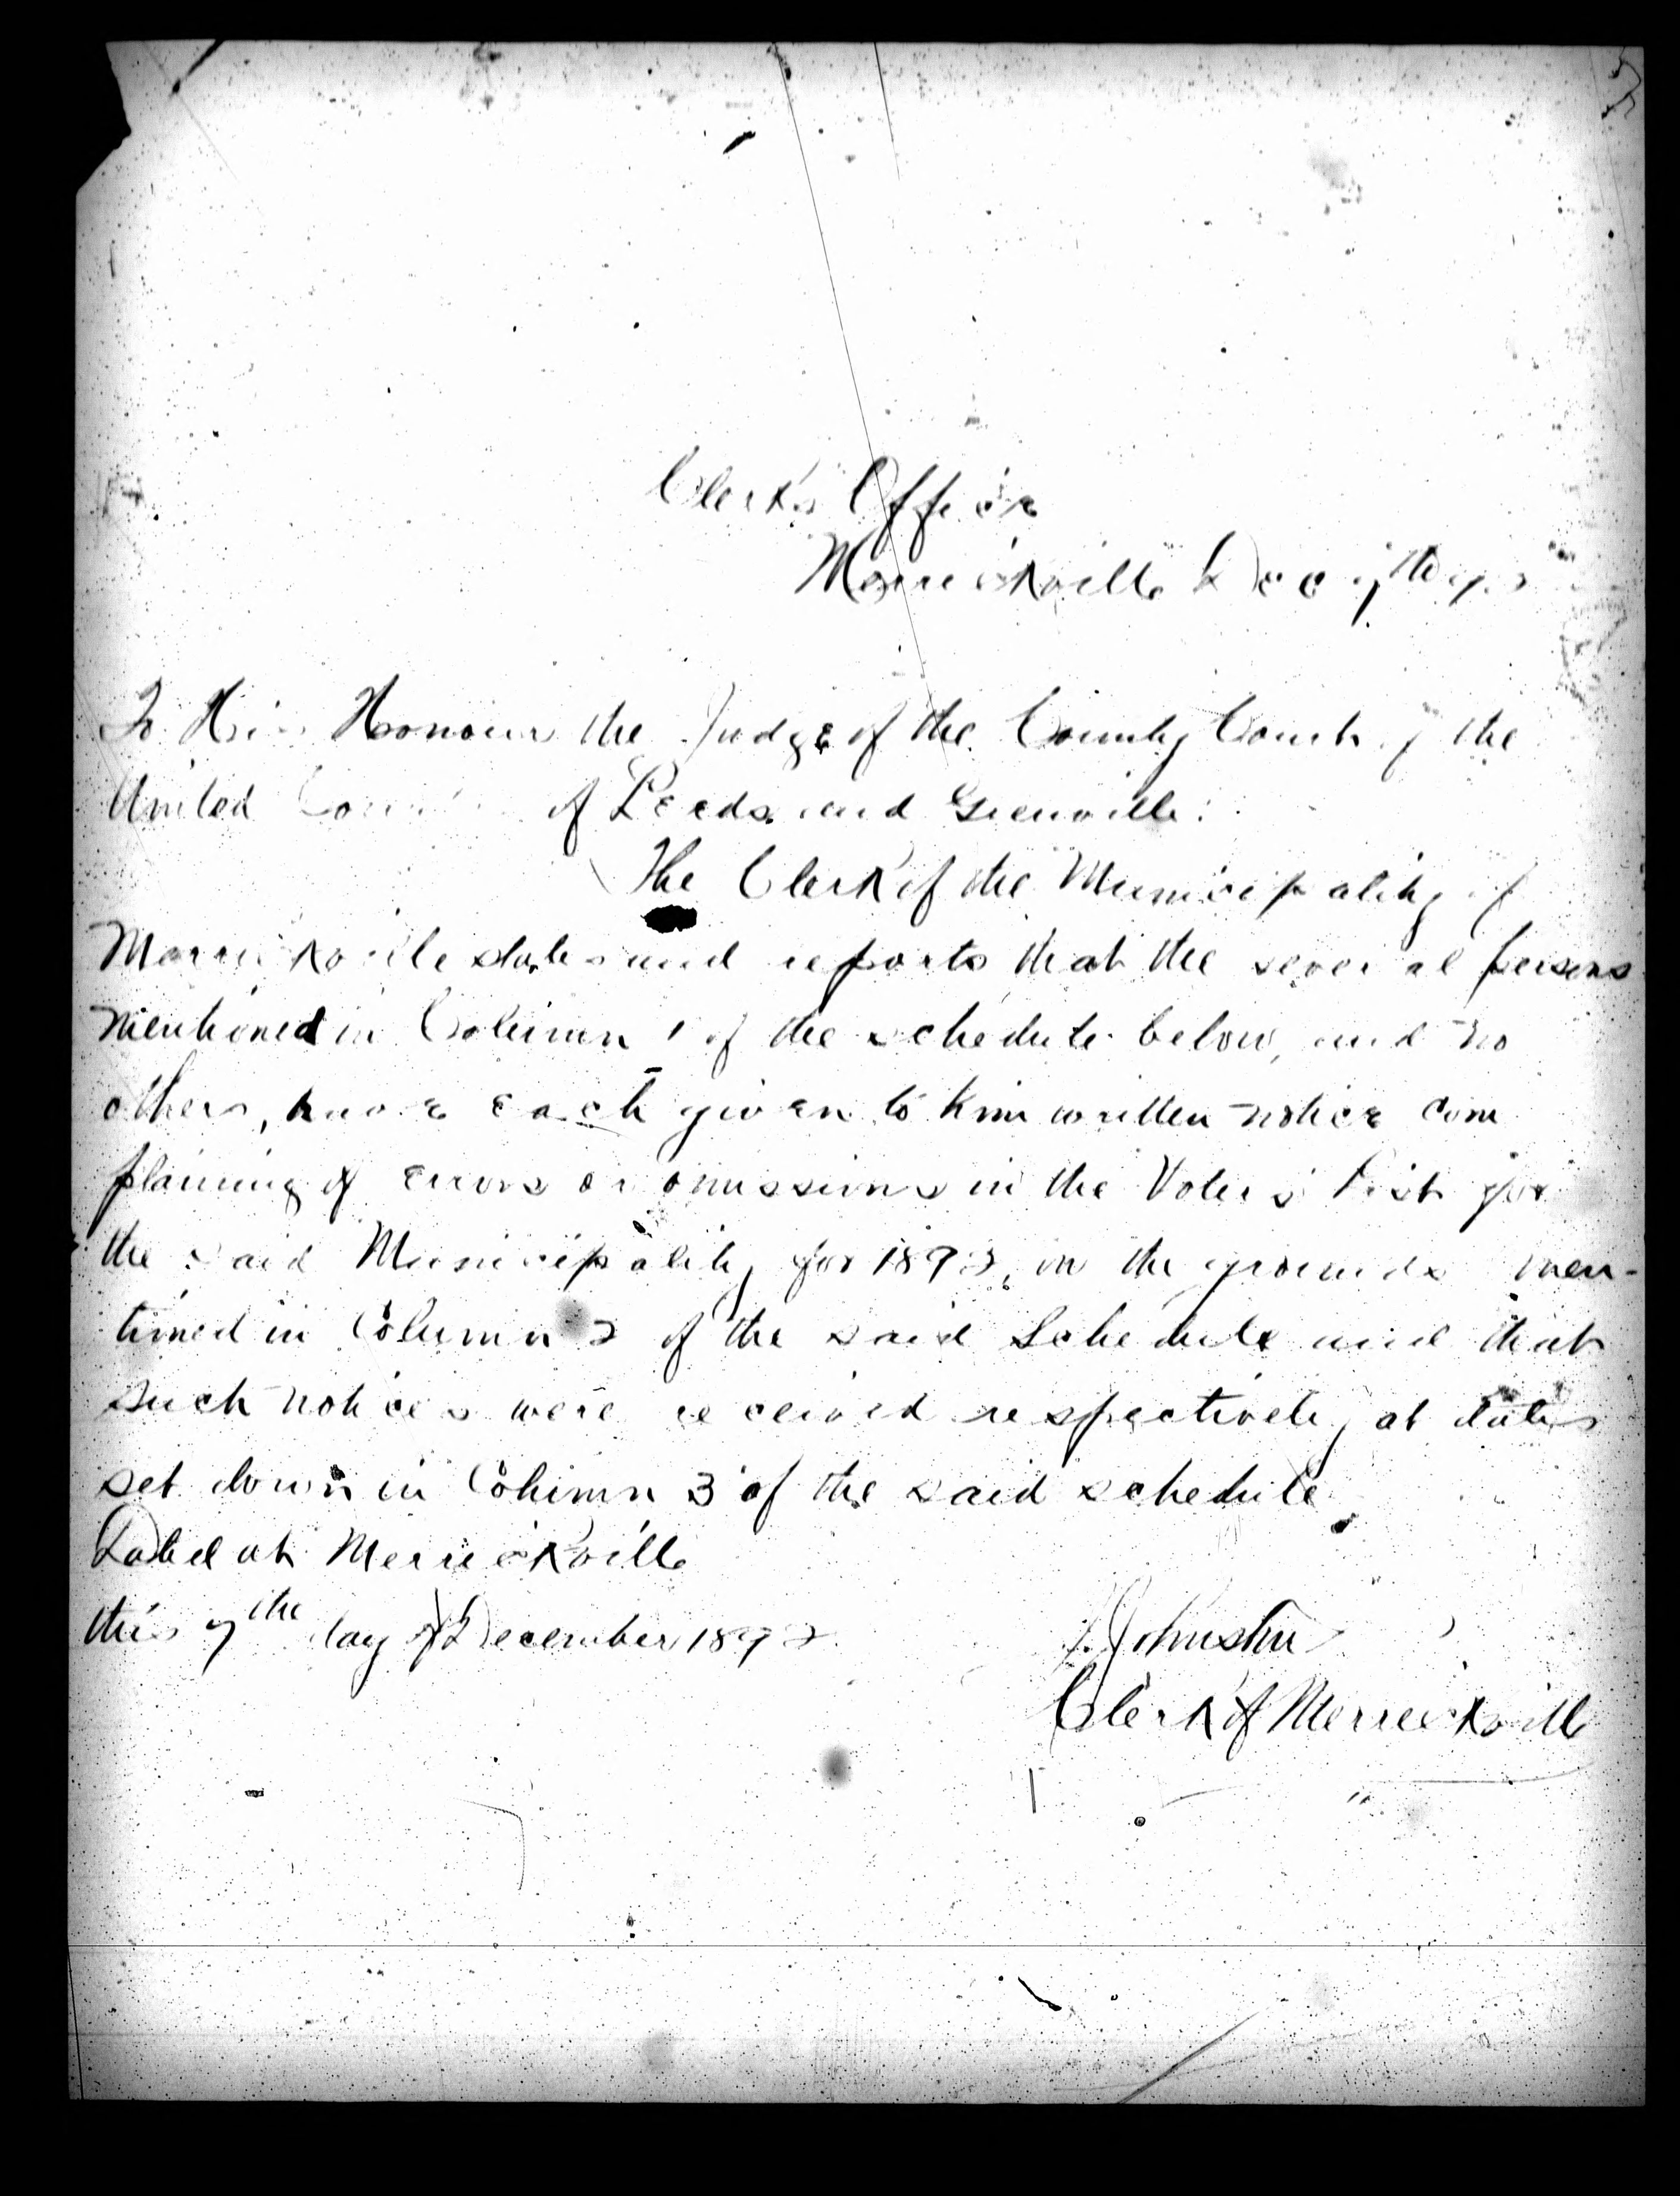 Clerk's Office
Merrickville Dec 7th
To His Honour the Judge of the County Court of the
United of Leeds and Grenville:
The Clerk of the Municipality of
Merrickville states and reports that the several persons
mentioned in Column 1 of the schedule below, and no
others, have each given to him written notice com
plaining of errors or omissions in the Voters' List for
the said Municipality for 1892, on the grounds men-
tioned in Column 2 of the said Schedule and that
such notices were received respectively at dates
set down in Column 3 of the said schedule.
Dated at Merrickville
this 7th day of December 1892
Johnston
Clerk of Merrickville